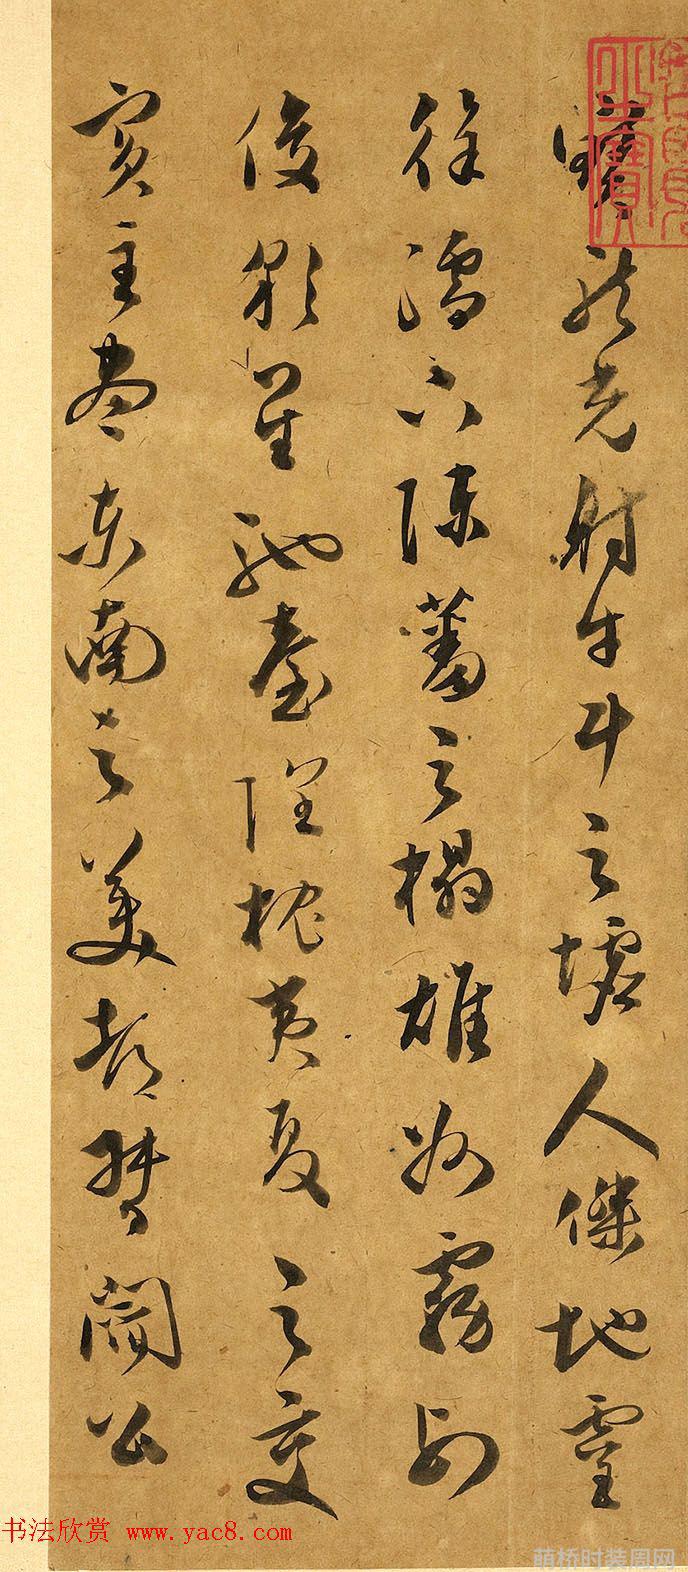 寶龍光射牛斗之墟人傑地靈
徐孺下陳蕃之榻雄州霧列
俊彩星馳臺隍枕夷夏之交
賓主盡東南之美都督閻公
书法欣赏 www.yac8.com
萌桥时装周网